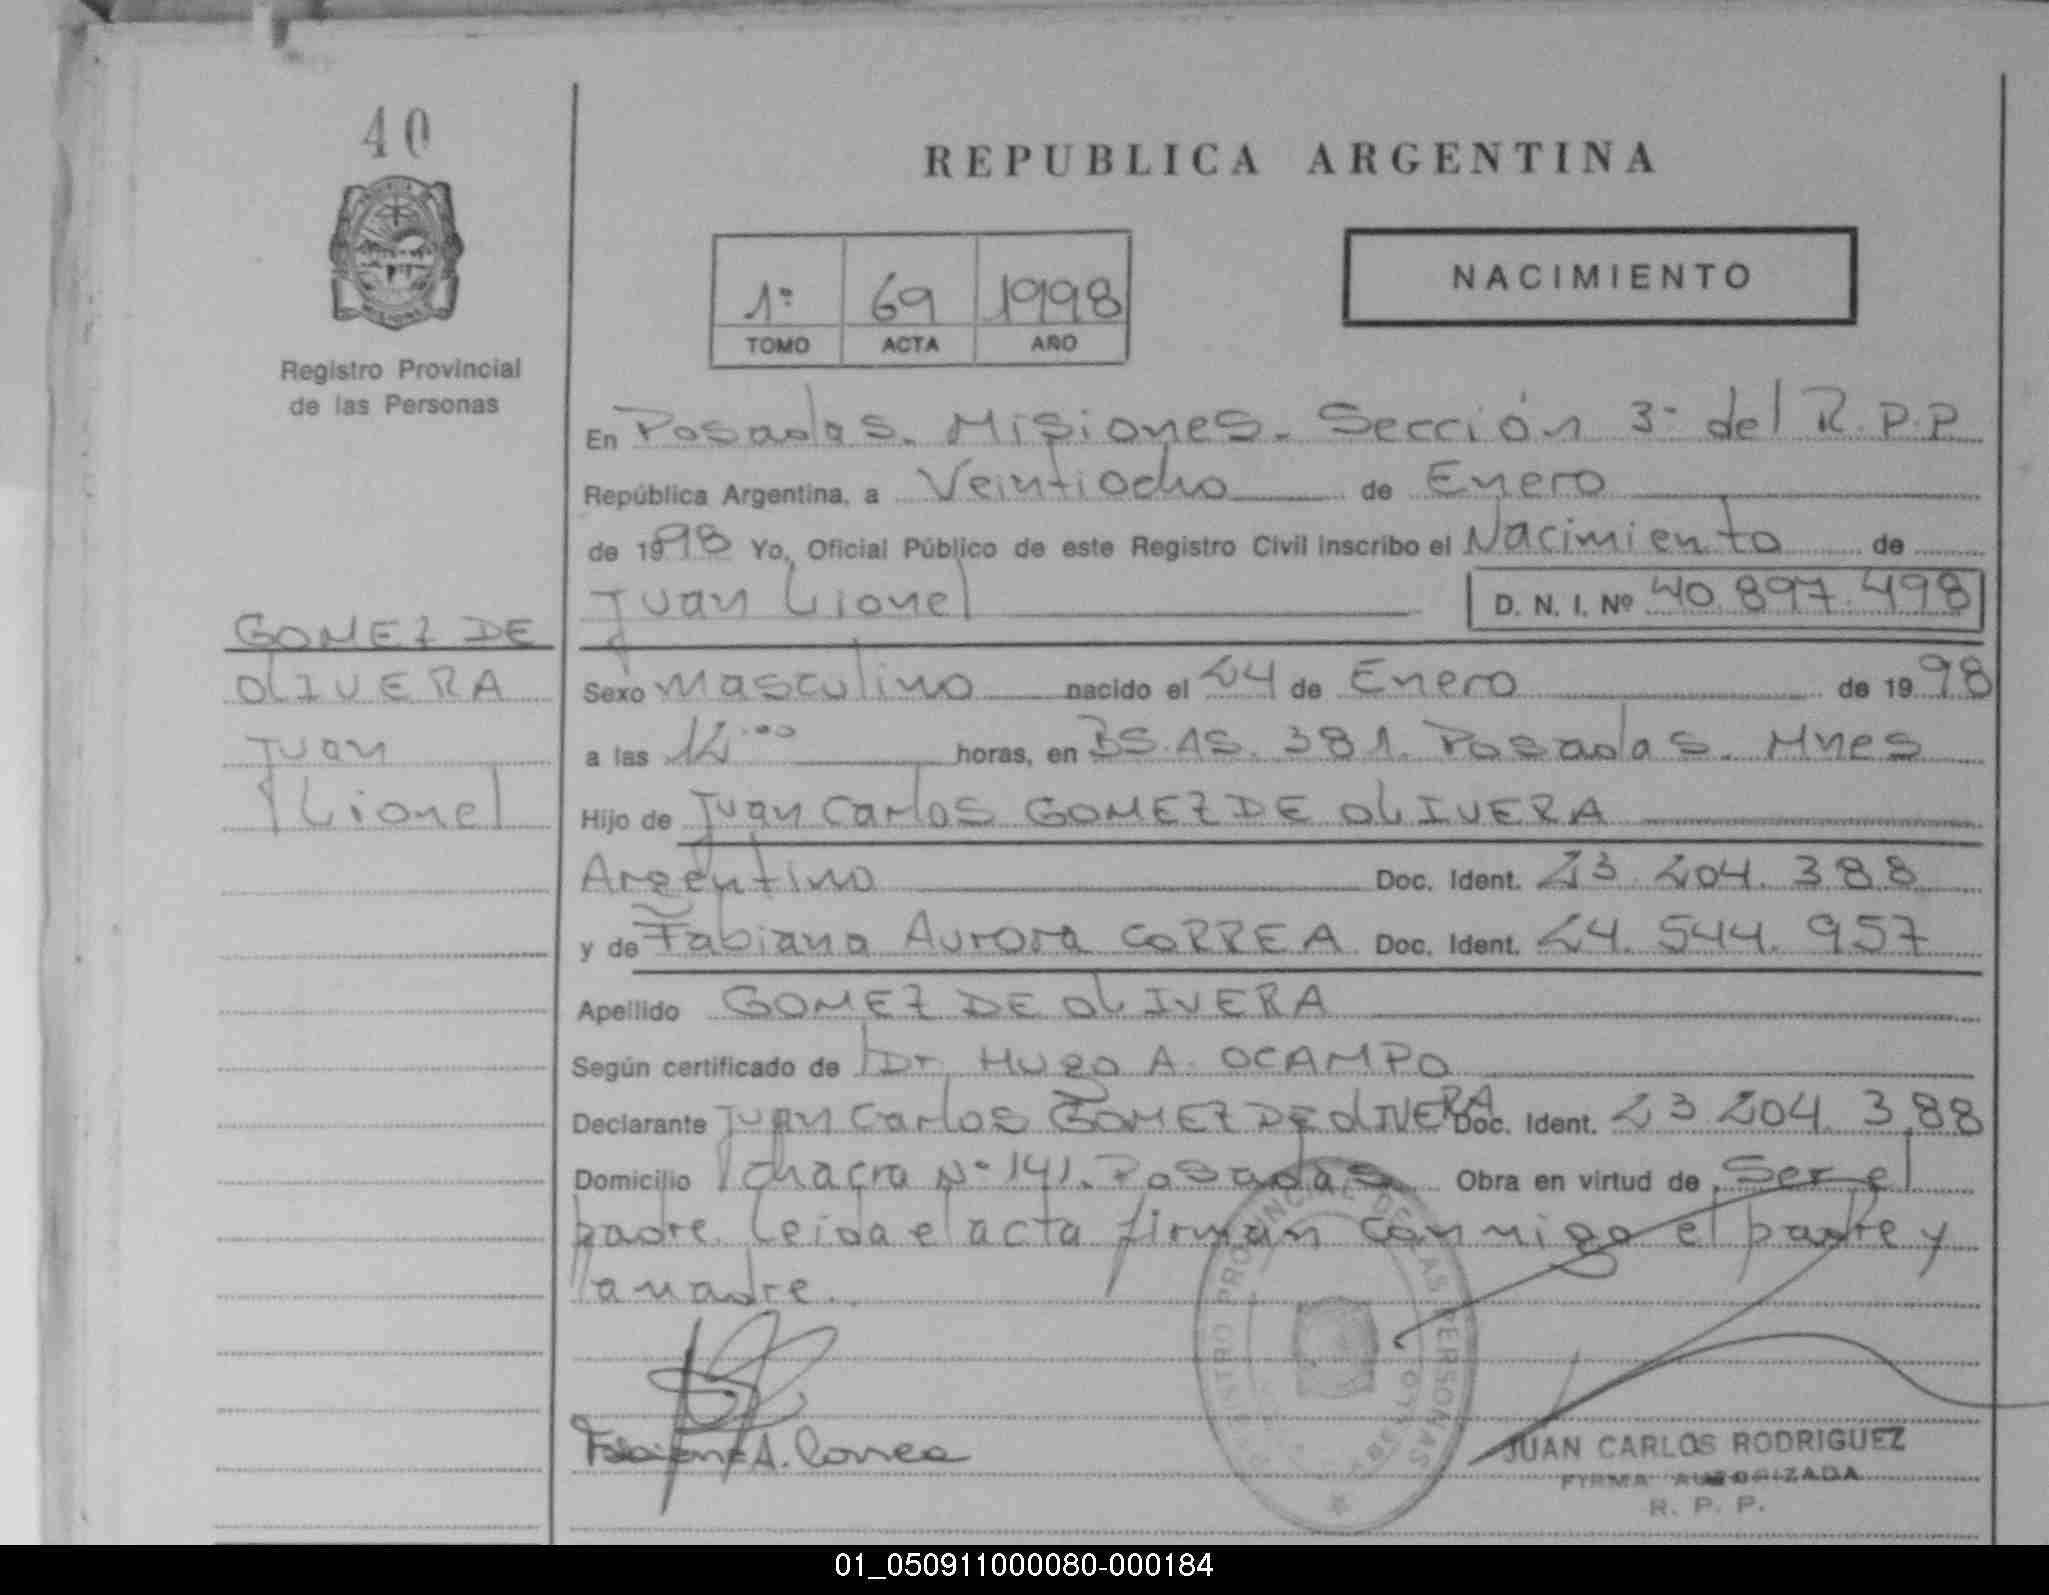 40
REPUBLICA ARGENTINA
NACIMIENTO
1º 69 1998
TOMO ACTA AÑO
Registro Provincial
de las Personas
En Posadas. Misiones. Sección 3º del R.P.P
República Argentina, a Veintiocho de Enero
de 1998 Yo, Oficial Público de este Registro Civil inscribo el Nacimiento de
Juan Lionel D. N. I. Nº 40.897.498
GOMEZ DE
OLIVERA
Juan
Lionel
Sexo Masculino nacido el 24 de Enero de 1998
a las 12:00 horas, en BS.AS. 381. Posadas. Mnes
Hijo de Juan Carlos GOMEZ DE OLIVERA
Argentino Doc. Ident. 23.204.388
y de Fabiana Aurora CORREA Doc. Ident. 24.544.957
Apellido GOMEZ DE OLIVERA
Según certificado de Dr. Hugo A. OCAMPO
Declarante Juan Carlos GOMEZ DE OLIVERA Doc. Ident. 23.204.388
Domicilio Chacra Nº 141. Posadas Obra en virtud de Ser el
padre. Leida el acta firman conmigo el padre y
la madre.
Fabiana A. Correa
REGISTRO PROVINCIAL DE LAS PERSONAS
JUAN CARLOS RODRIGUEZ
FIRMA AUTORIZADA
R. P. P.
01_050911000080-000184